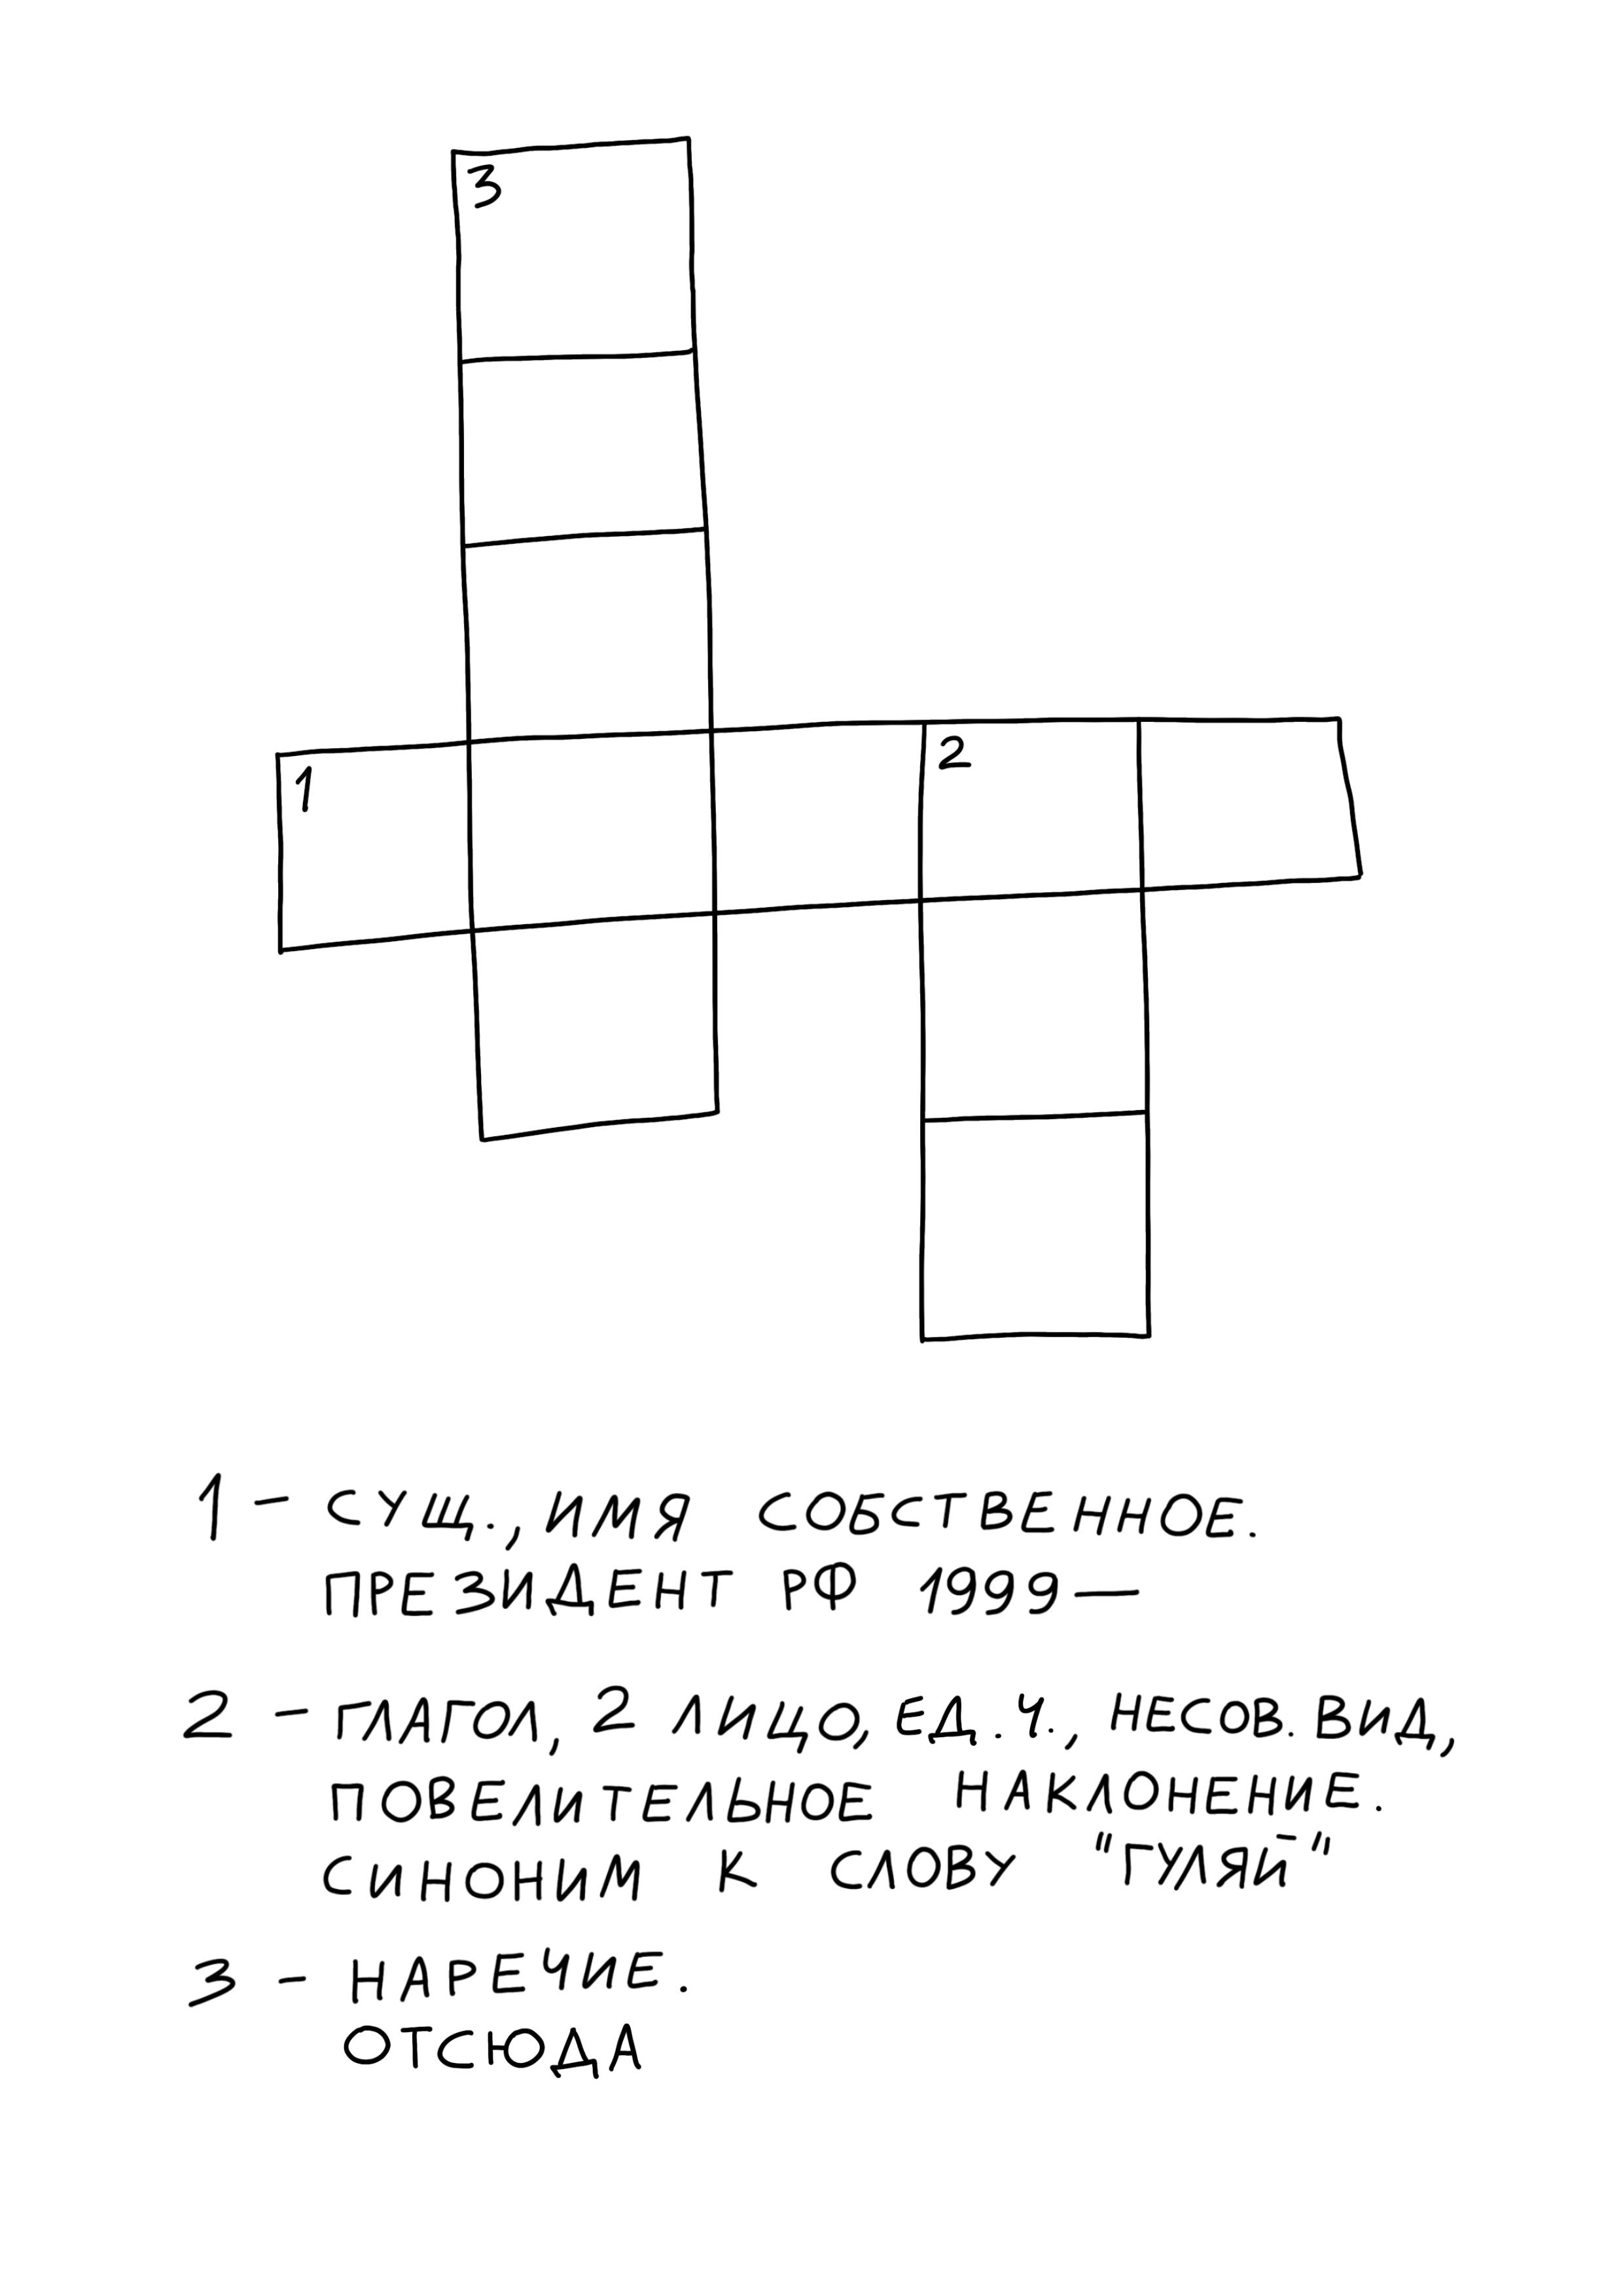 3
1
2
1 – СУЩ., ИМЯ СОБСТВЕННОЕ.
ПРЕЗИДЕНТ РФ 1999—
2 – ГЛАГОЛ, 2 ЛИЦО, ЕД.Ч., НЕСОВ. ВИД,
ПОВЕЛИТЕЛЬНОЕ НАКЛОНЕНИЕ.
СИНОНИМ К СЛОВУ "ГУЛЯЙ"
3 – НАРЕЧИЕ.
ОТСЮДА